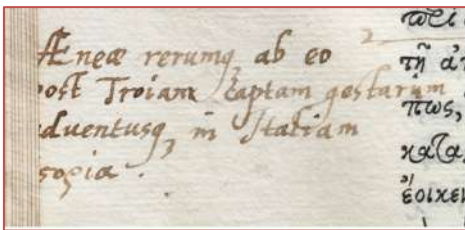 Æneæ rerumq, ab eo
post Troiam captam gestarum
adventusq, in Italiam
τῇ
πως,
κατα
ἔοικεν